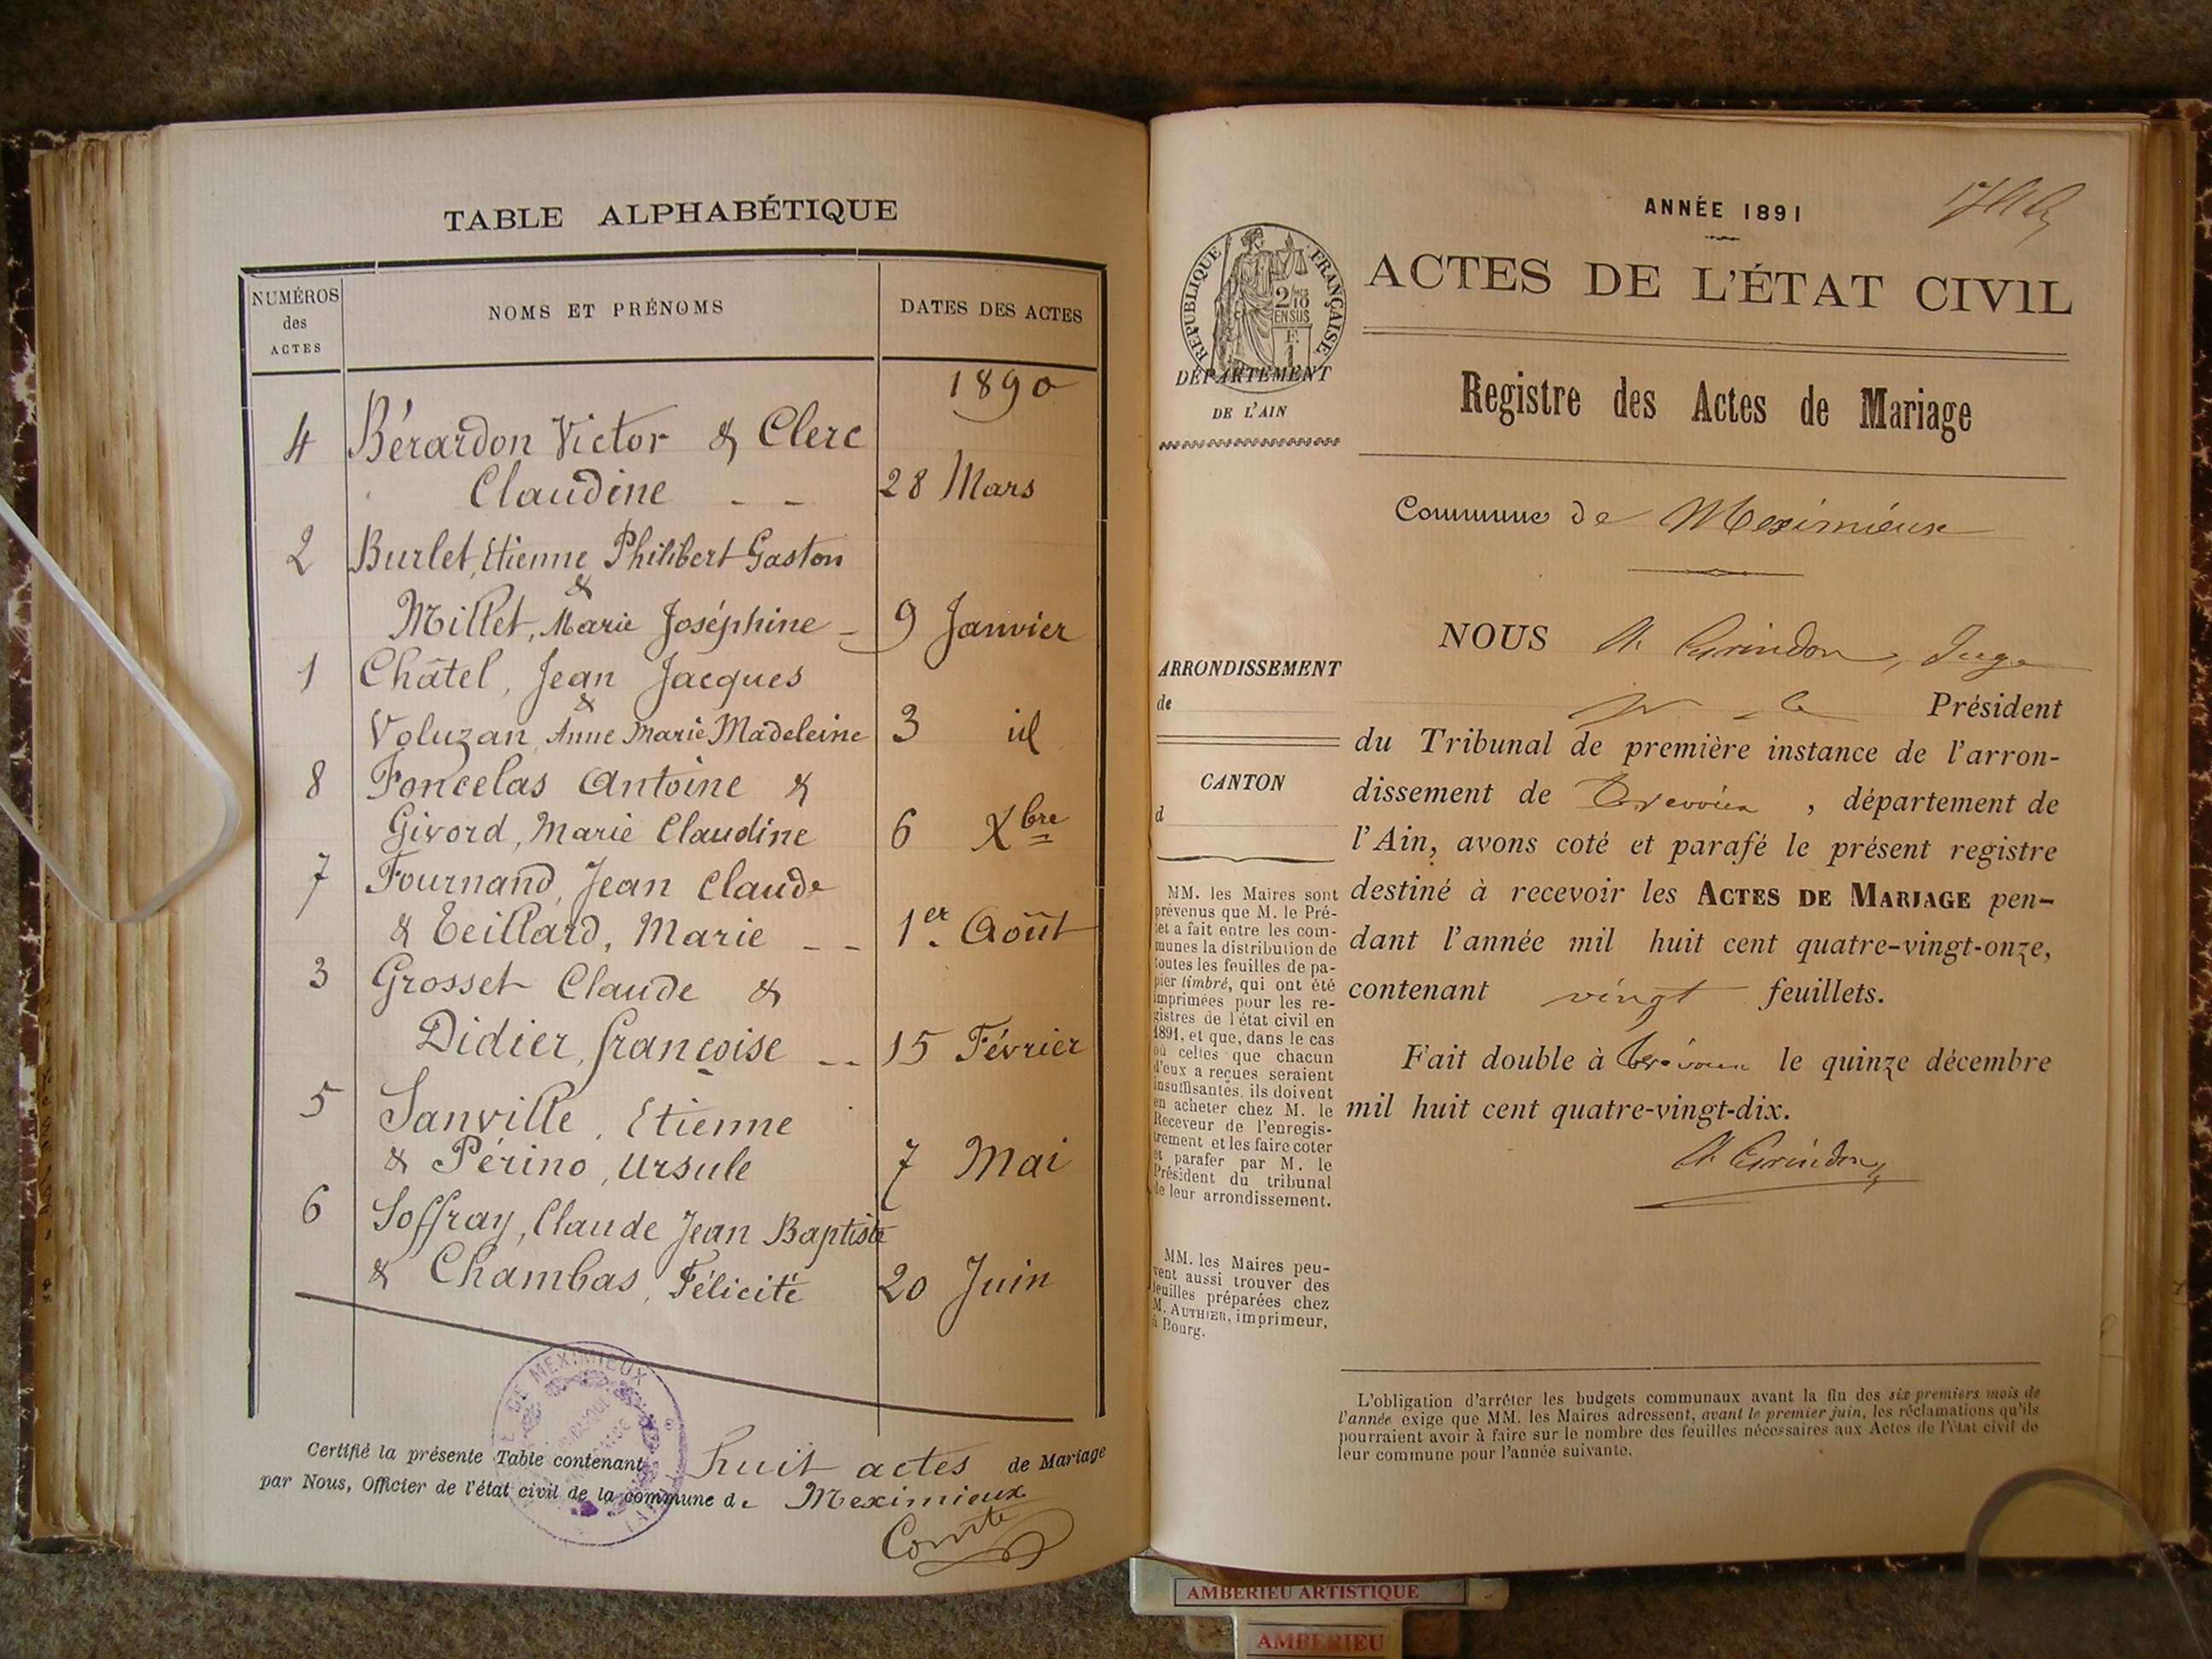 TABLE ALPHABÉTIQUE
NUMÉROS des ACTES
NOMS ET PRÉNOMS
DATES DES ACTES
1890
4 Bérardon Victor & Clerc
Claudine - - 28 Mars
2 Burlet, Etienne Philibert Gaston
&
Millet, Marie Joséphine - 9 Janvier
1 Châtel, Jean Jacques
&
Voluzan, Anne Marie Madeleine 3 id
8 Foncelas Antoine &
Givord, Marie Claudine 6 Xbre
7 Fournand, Jean Claude
& Teillard, Marie - - 1er Août
3 Grosset Claude &
Didier, françoise - - 15 Février
5 Sanville, Etienne
& Périno, Ursule 7 Mai
6 Soffray, Claude Jean Baptiste
& Chambas, Félicité 20 Juin
DE MEXIMIEUX
Certifié la présente Table contenant huit actes de Mariage
par Nous, Officier de l'état civil de la commune de Meximieux
Comte
ANNÉE 1891
RÉPUBLIQUE FRANÇAISE
2/10
EN SUS
F.
1
ACTES DE L'ÉTAT CIVIL
DÉPARTEMENT
DE L'AIN
Registre des Actes de Mariage
Commune de Meximieux
NOUS Ch Grindon, Juge
Président
du Tribunal de première instance de l'arron-
dissement de Trévoux, département de
l'Ain, avons coté et parafé le présent registre
destiné à recevoir les ACTES DE MARIAGE pen-
dant l'année mil huit cent quatre-vingt-onze,
contenant vingt feuillets.
Fait double à Trévoux le quinze décembre
mil huit cent quatre-vingt-dix.
Ch Grindon
ARRONDISSEMENT
de
CANTON
d
MM. les Maires sont
prévenus que M. le Pré-
fet a fait entre les com-
munes la distribution de
toutes les feuilles de pa-
pier timbré, qui ont été
imprimées pour les re-
gistres de l'état civil en
1891, et que, dans le cas
où celles que chacun
d'eux a reçues seraient
insuffisantes, ils doivent
en acheter chez M. le
Receveur de l'enregis-
trement et les faire coter
et parafer par M. le
Président du tribunal
de leur arrondissement.
MM. les Maires peu-
vent aussi trouver des
feuilles préparées chez
M. AUTHIER, imprimeur,
à Bourg.
L'obligation d'arrêter les budgets communaux avant la fin des six premiers mois de
l'année exige que MM. les Maires adressent, avant le premier juin, les réclamations qu'ils
pourraient avoir à faire sur le nombre des feuilles nécessaires aux Actes de l'état civil de
leur commune pour l'année suivante.
AMBERIEU ARTISTIQUE
AMBERIEU